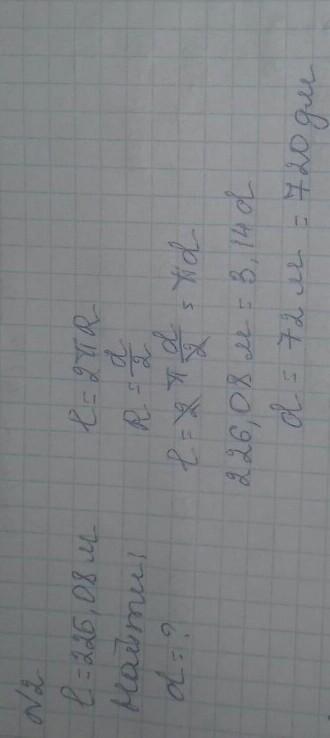 №2
l = 226,08 м
Найти:
d = ?
l = 2πR
R = d/2
l = 2π d/2 = πd
226,08 м = 3,14d
d = 72 м = 720 дм